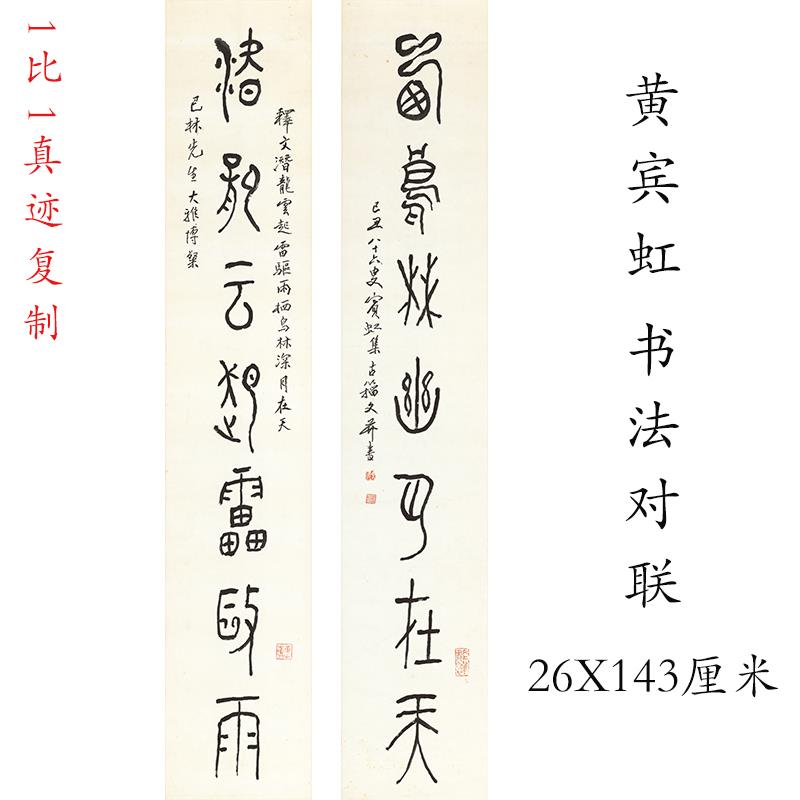 1比1真迹复制
潛龍云起雷敺雨
釋文潛龍雲起雷驅雨栖烏林深月在天
己林先生大雅博粲
林幽月在天
己丑八十六叟賓虹集古籀文并書
黄宾虹 书法对联
26X143厘米